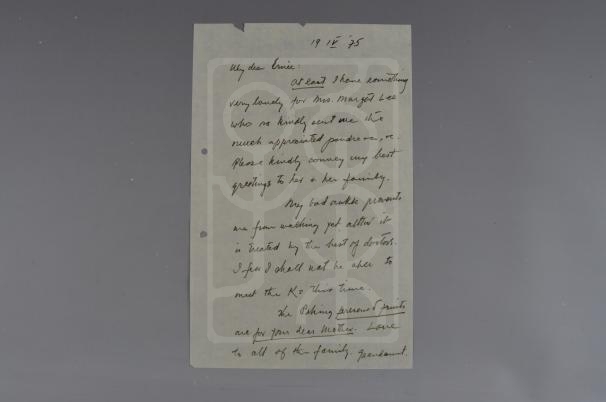 19 IV '75
My dear Ernie:
At last I have something
very lovely for Mrs. Margot Lee
who so kindly sent me the
much appreciated
Please kindly convey my best
greetings to her & her family.
My bad ankle prevents
me from walking yet altho' it
is treated by the best of doctors.
I fear I shall not be able to
meet the K's this time.
The Peking preserved fruits
are for your dear Mother. Love
to all of the family. Grandaunt.